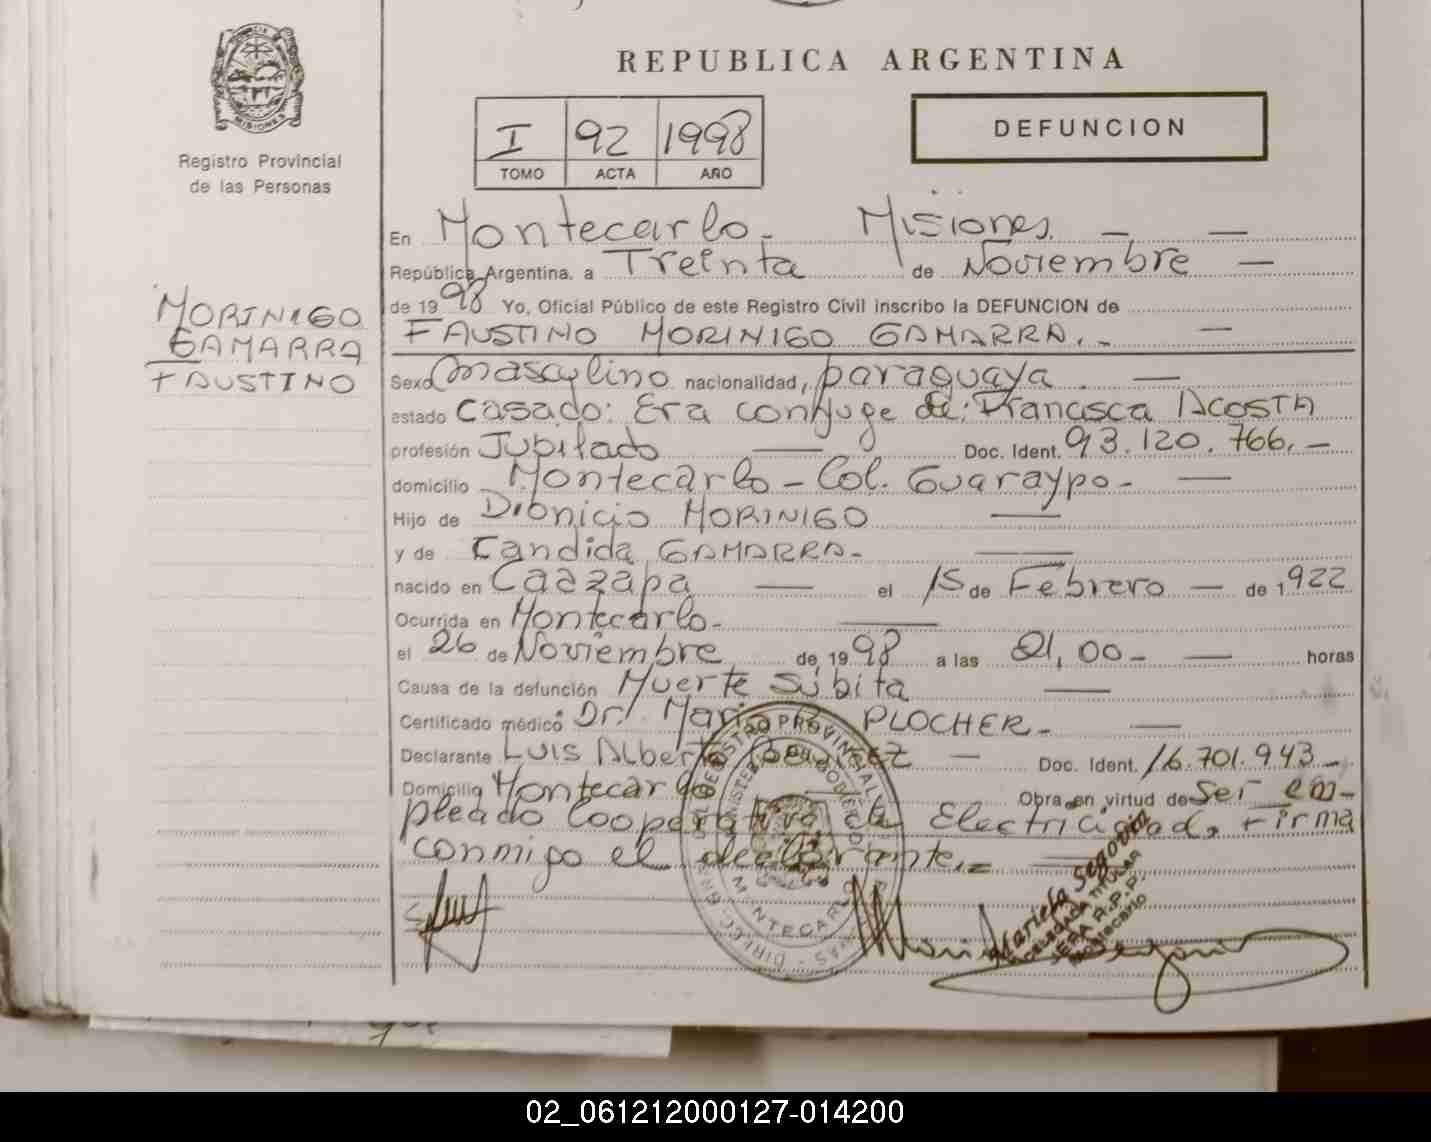 REPUBLICA ARGENTINA
MISIONES
Registro Provincial
de las Personas
I 92 1998
TOMO ACTA AÑO
DEFUNCION
MORINIGO
GAMARRA
FAUSTINO
En Montecarlo - Misiones. — —
República Argentina, a Treinta de Noviembre —
de 19 98 Yo, Oficial Público de este Registro Civil inscribo la DEFUNCION de
FAUSTINO MORINIGO GAMARRA.- —
Sexo Masculino nacionalidad, paraguaya. —
estado Casado: Era conyuge de: Francisca ACOSTA
profesión Jubilado — Doc. Ident. 93.120.766.-
domicilio Montecarlo - Col. Guaraypo - —
Hijo de Dionicio MORINIGO —
y de Candida GAMARRA- —
nacido en Caazapa — el 15 de Febrero — de 1922
Ocurrida en Montecarlo- —
el 26 de Noviembre de 19 98 a las 21,00- — horas
Causa de la defunción Muerte Súbita —
Certificado médico Dr. PLOCHER- —
Declarante LUIS Alberto — Doc. Ident. 16.701.943-
Domicilio Montecarlo Obra en virtud de ser em-
pleado Cooperativa de Electricidad. Firma
conmigo el declarante.- —
REGISTRO PROVINCIAL
MONTECARLO
Mariela Segovia
02_061212000127-014200